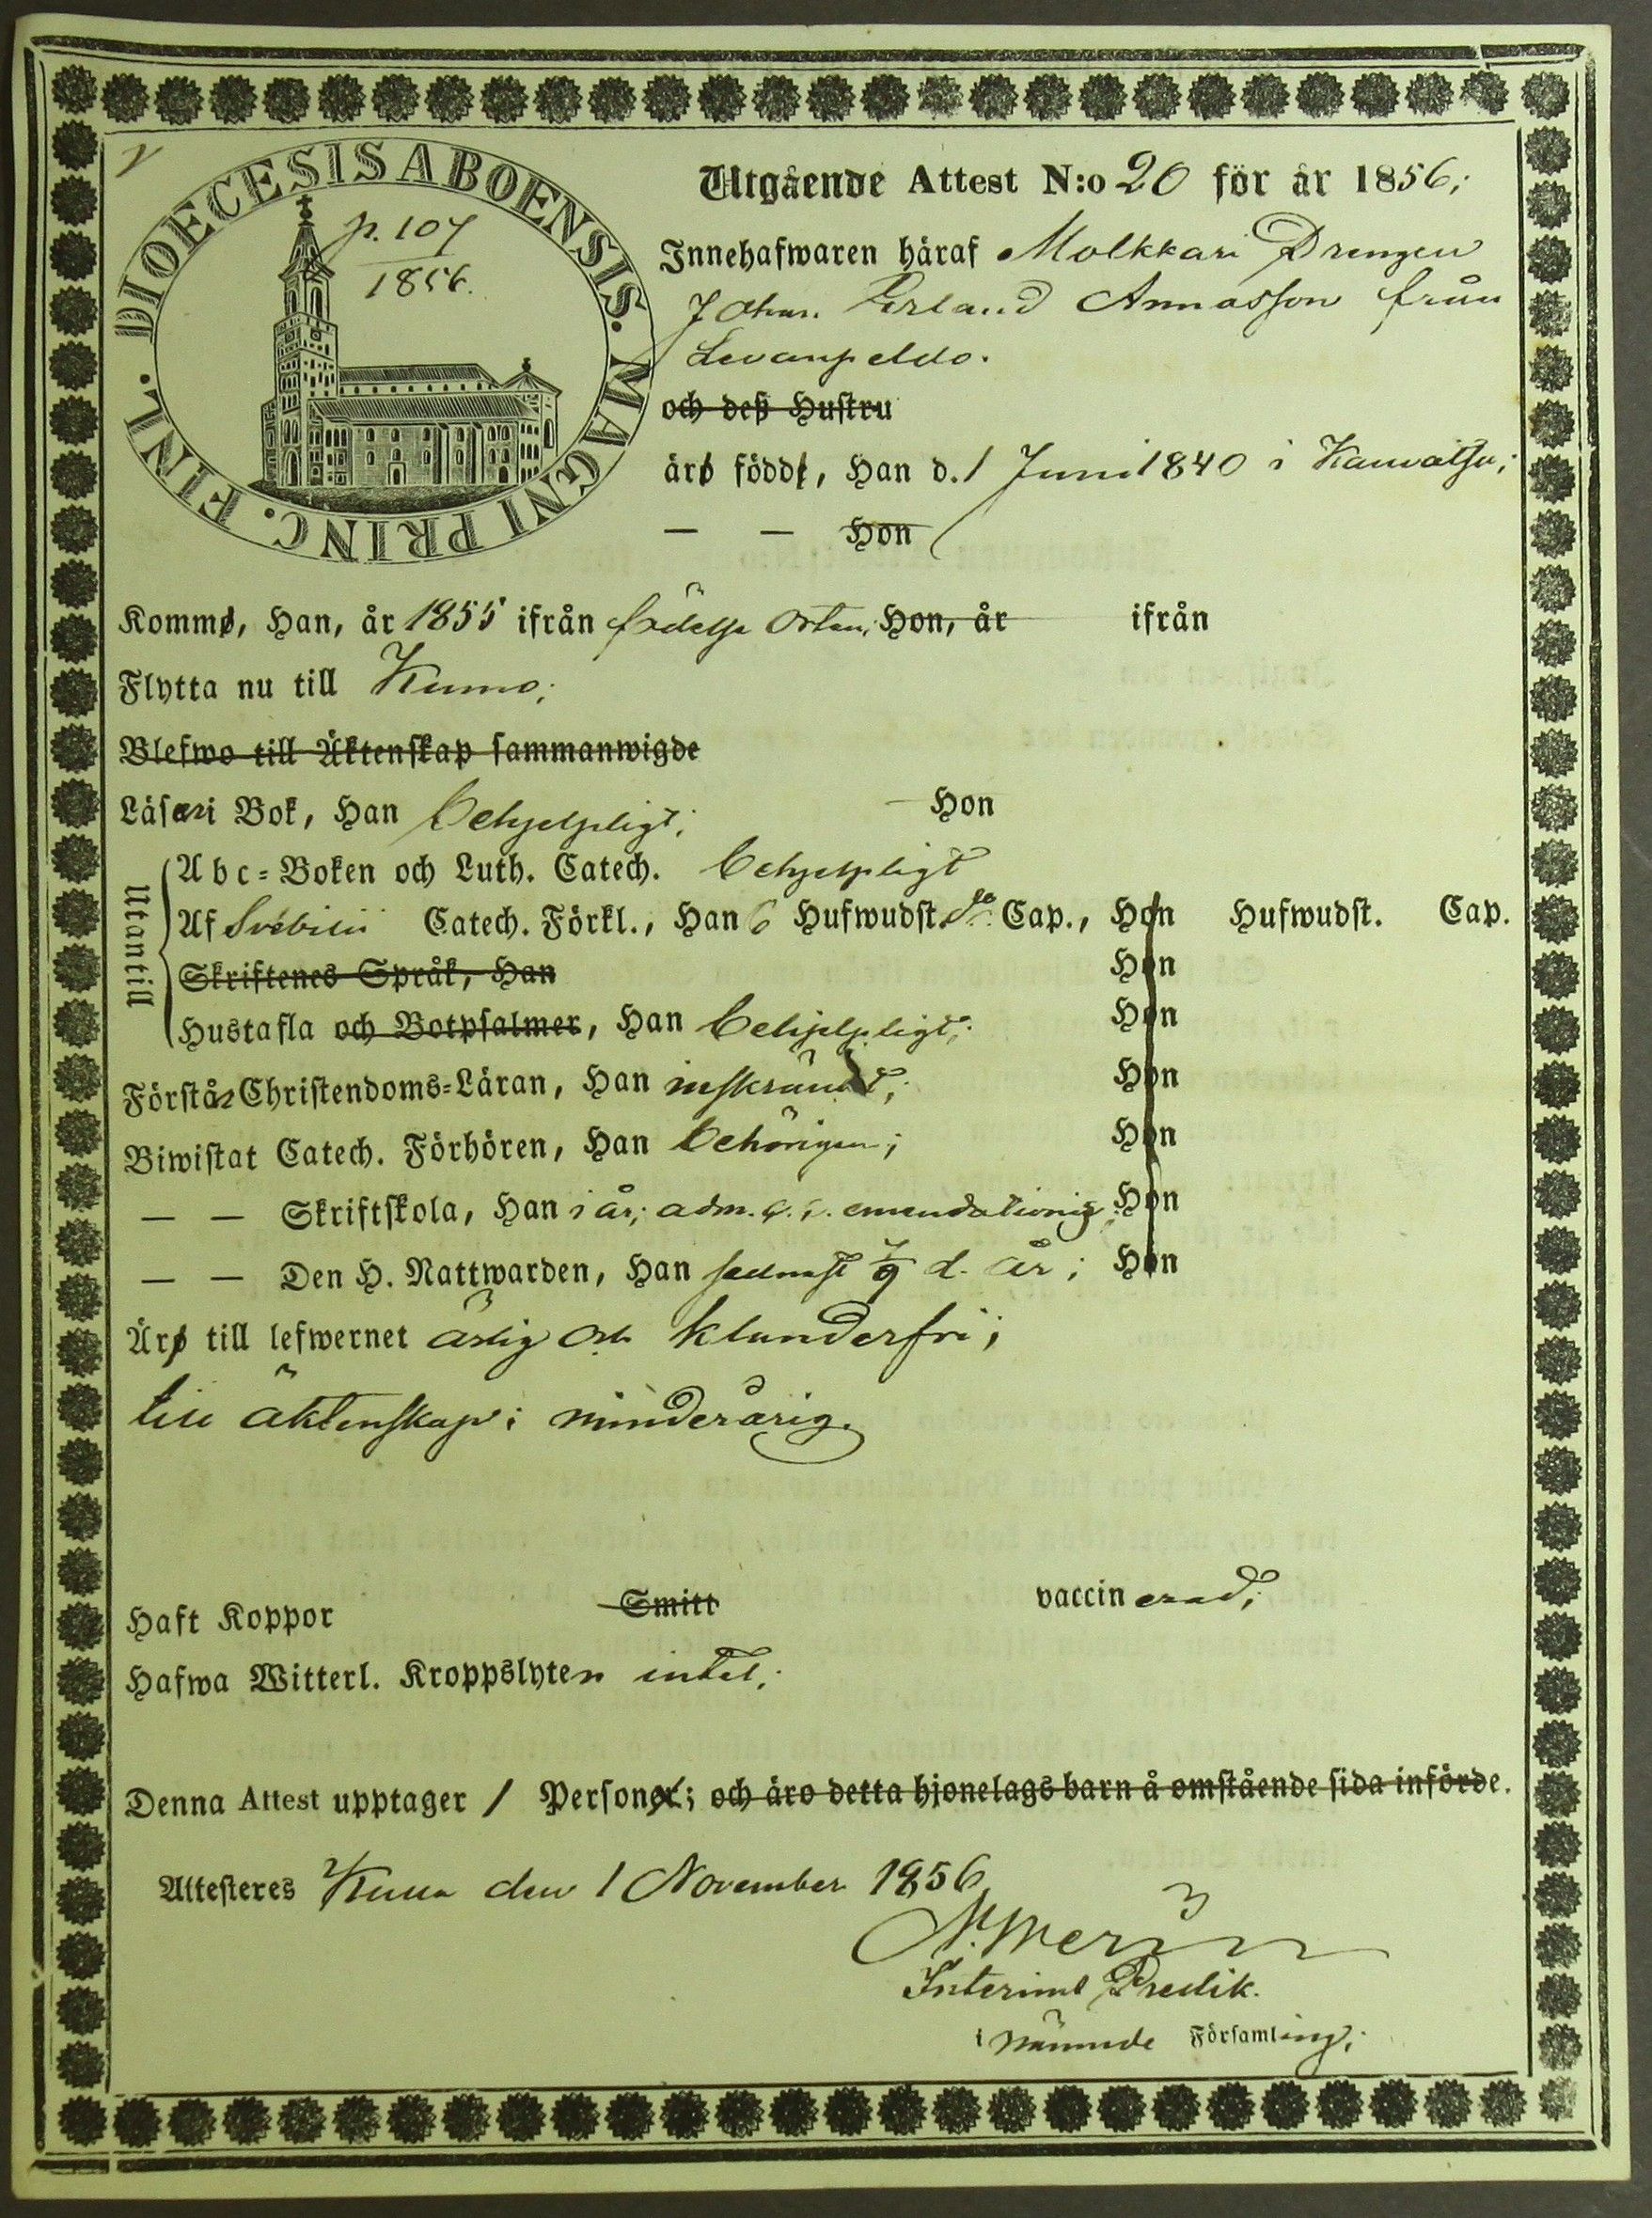 DIOECESIS ABOENSIS. MAGNI PRINC. FINL.
p. 107
1856.
Utgående Attest N:o 20 för år 1856;
Innehafwaren häraf Molkkari Drengen
Johan Erland Annasson från
Levanpeldo.
och deß Hustru
äro född, Han d. 1 Juni 1840 i Kauvatsa;
— — Hon
Komm, Han, år 1855 ifrån födelse Orten; Hon, år ifrån
Flytta nu till Kumo;
Blefwo till Äktenskap sammanwigde
Läser i Bok, Han behjelpligt; Hon
Utantill
Abc-Boken och Luth. Catech. behjelpligt
Af Svebilii Catech. Förkl., Han 6 Hufwudst. Cap., Hon Hufwudst. Cap.
Skriftenes Språk, Han Hon
Hustafla och Botpsalmer, Han behjelpligt; Hon
Förstår Christendoms-Läran, Han inskränkt; Hon
Biwistat Catech. Förhören, Han behörigen; Hon
— — Skriftskola, Han i år; adm. emendationis; Hon
— — Den H. Nattwarden, Han sednast 7/9 d. år; Hon
Äro till lefwernet ärlig och klanderfri;
till äktenskap: minderårig.
Haft Koppor Smitt vaccinerad;
Hafwa Witterl. Kroppslyten intet;
Denna Attest upptager 1 Person; och äro detta hjonelags barn å omstående sida införde.
Attesteres den 1 November 1856
Interims Predik.
i nämnde Församling;